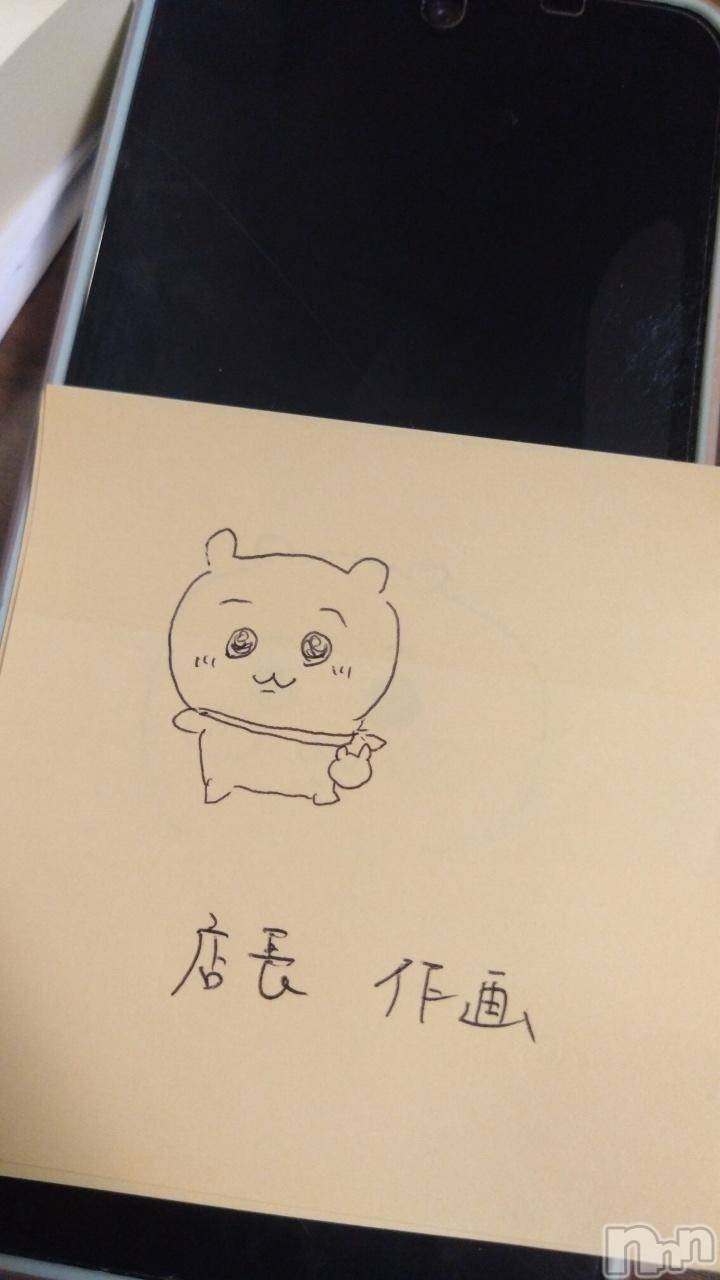 店長 作画
nnn